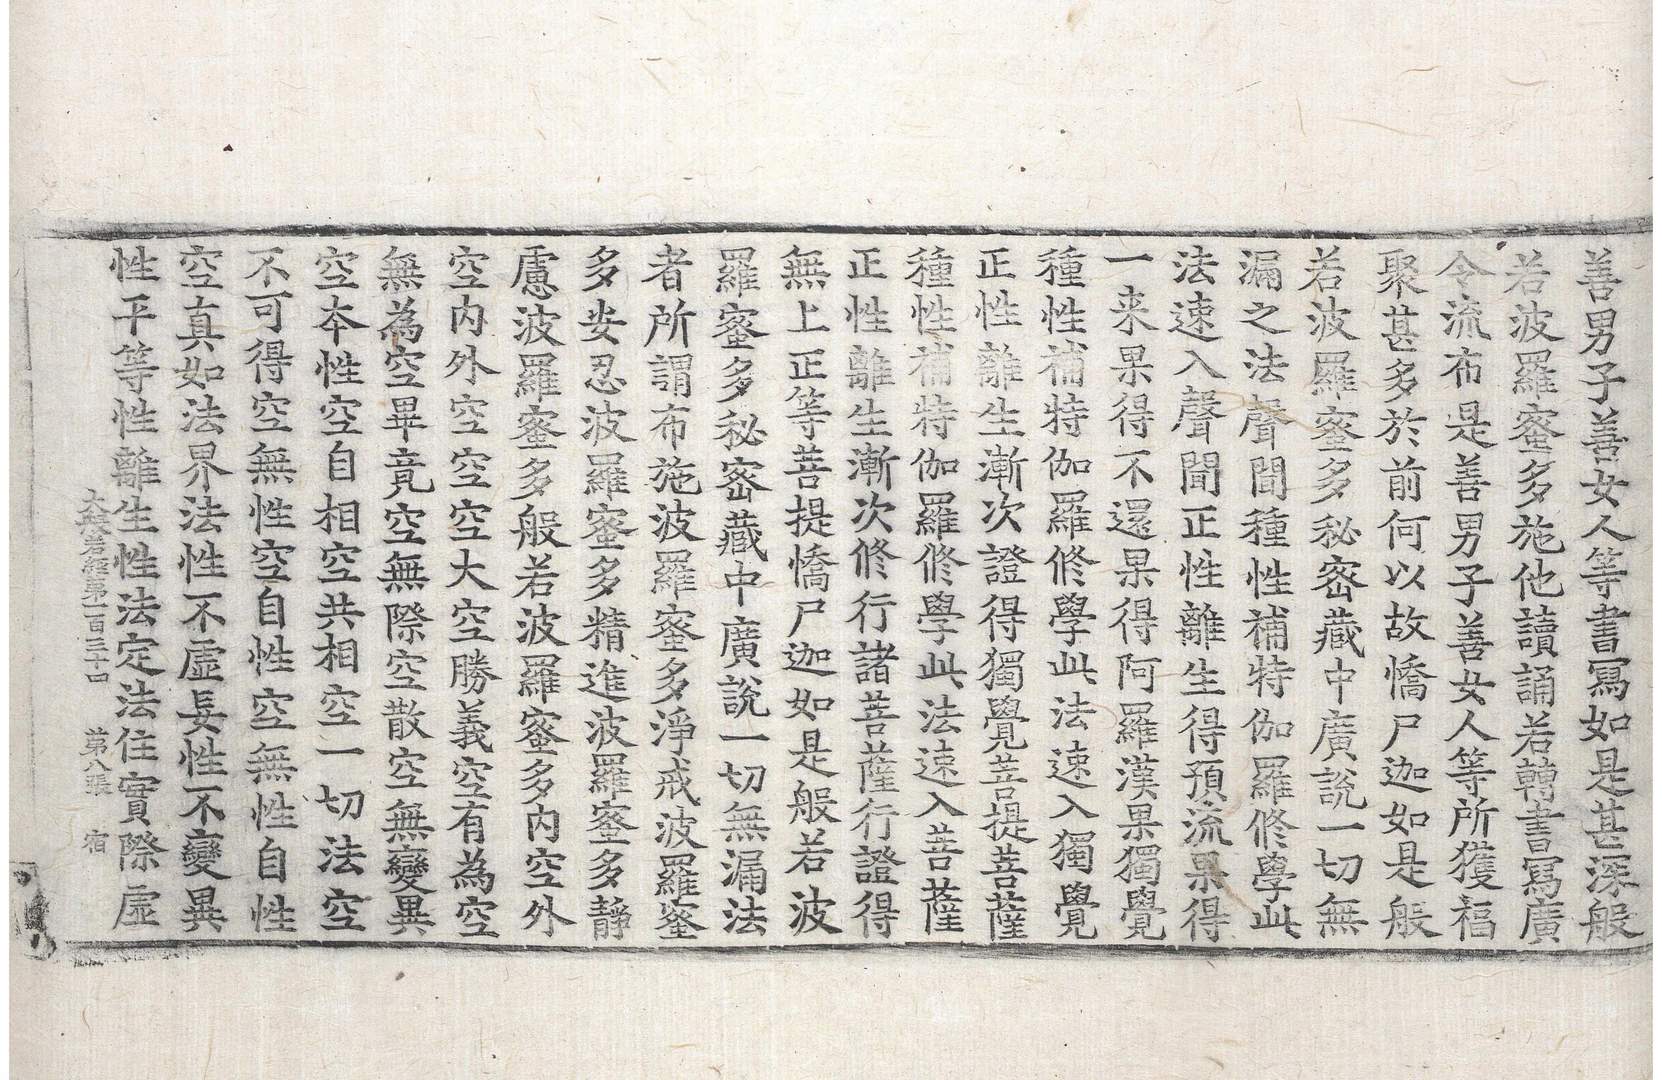 善男子善女人等書寫如是甚深般
若波羅蜜多施他讀誦若轉書寫廣
令流布是善男子善女人等所獲福
聚甚多於前何以故憍尸迦如是般
若波羅蜜多秘密藏中廣說一切無
漏之法聲聞種性補特伽羅修學此
法速入聲聞正性離生得預流果得
一来果得不還果得阿羅漢果獨覺
種性補特伽羅修學此法速入獨覺
正性離生漸次證得獨覺菩提菩薩
種性補特伽羅修學此法速入菩薩
正性離生漸次修行諸菩薩行證得
無上正等菩提憍尸迦如是般若波
羅蜜多秘密藏中廣說一切無漏法
者所謂布施波羅蜜多淨戒波羅蜜
多安忍波羅蜜多精進波羅蜜多靜
慮波羅蜜多般若波羅蜜多內空外
空內外空空空大空勝義空有為空
無為空畢竟空無際空散空無變異
空本性空自相空共相空一切法空
不可得空無性空自性空無性自性
空真如法界法性不虛妄性不變異
性平等性離生性法定法住實際虛
大般若經第一百三十四 第八張 宿